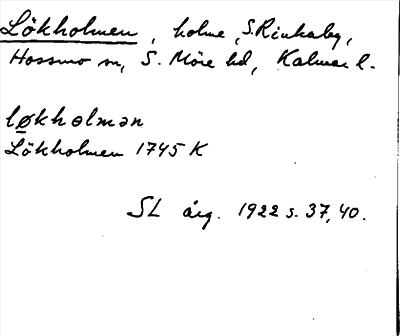 Lökholmen, holme, S. Rinkaby,
Hossmo sn, S. Möre hd, Kalmar l.
løkhɵlmən
Lökholmen 1745 K
SL årg. 1922 s. 37, 40.